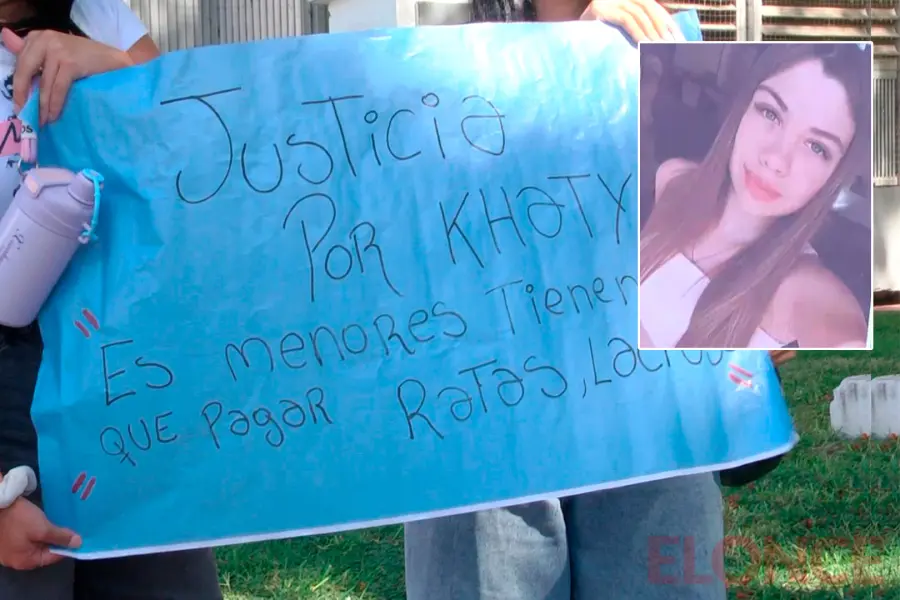 Justicia
Por KHaTY
"Es menores Tienen
QUE Pagar Ratas,
"
ELONCE